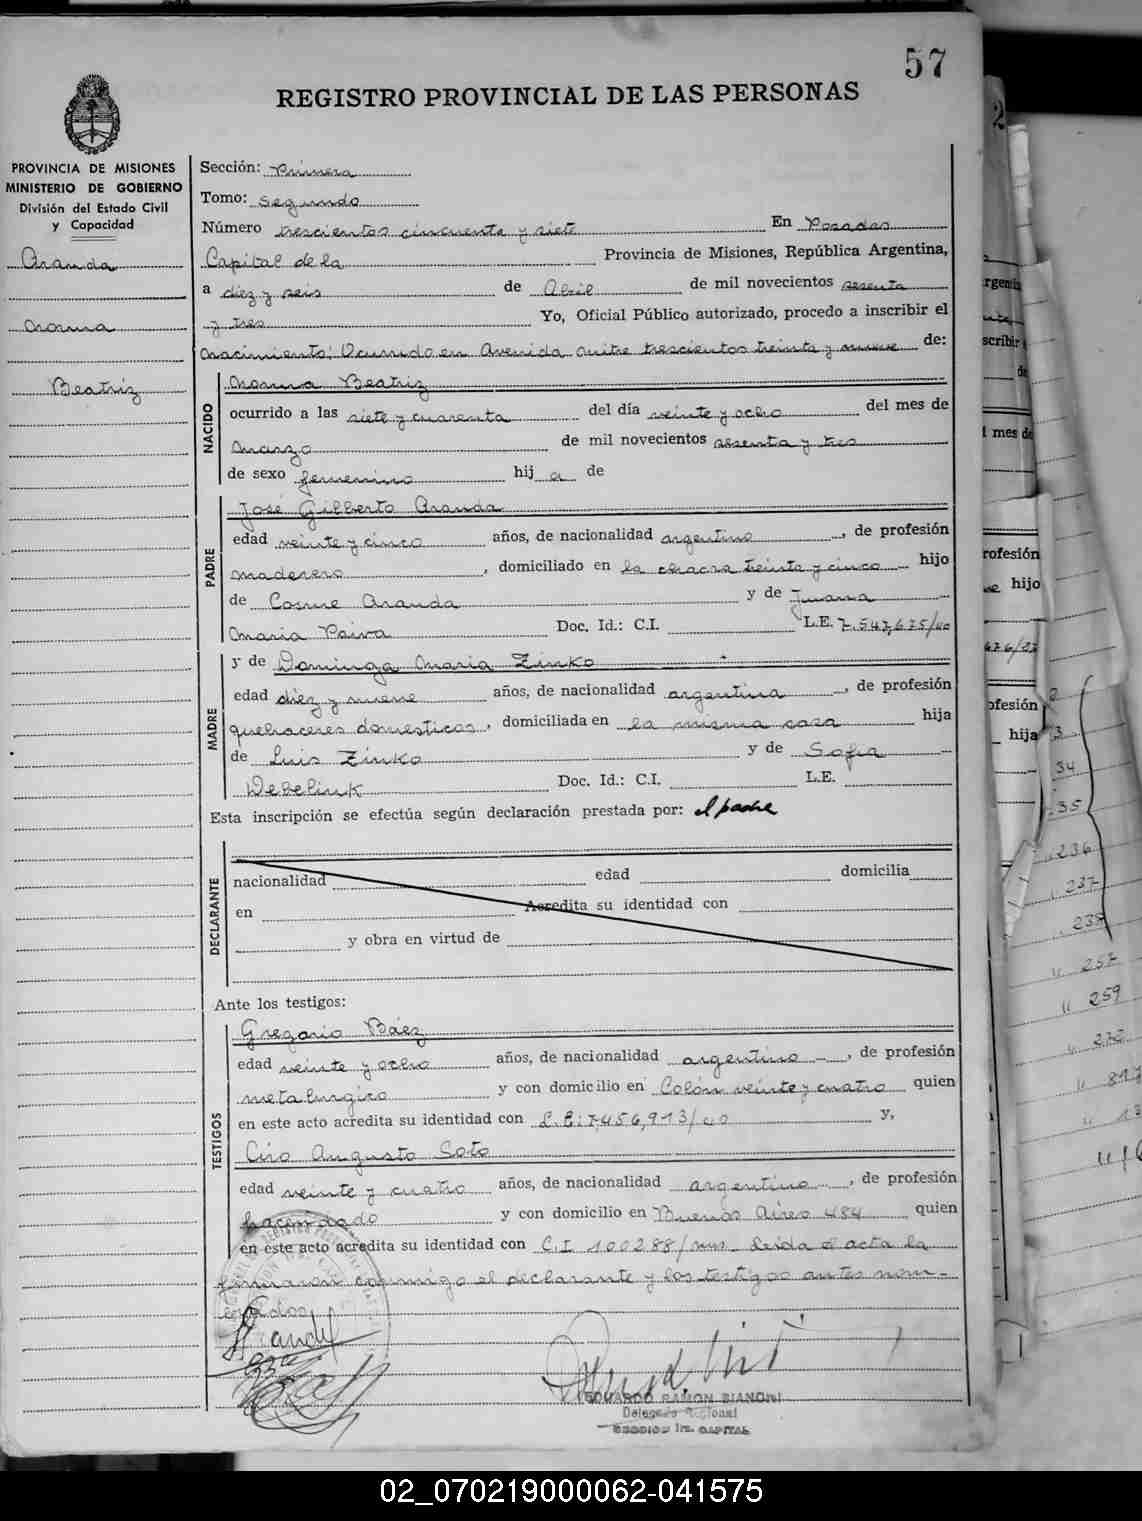 57
REGISTRO PROVINCIAL DE LAS PERSONAS
PROVINCIA DE MISIONES
MINISTERIO DE GOBIERNO
División del Estado Civil
y Capacidad
Aranda
Norma
Beatriz
Sección: Primera
Tomo: Segundo
Número trescientos cincuenta y siete En Posadas
Capital de la Provincia de Misiones, República Argentina,
a diez y seis de Abril de mil novecientos sesenta
y tres Yo, Oficial Público autorizado, procedo a inscribir el
nacimiento: Ocurrido en Avenida Mitre trescientos treinta y nueve de:
NACIDO
Norma Beatriz
ocurrido a las siete y cuarenta del día veinte y ocho del mes de
Marzo de mil novecientos sesenta y tres
de sexo femenino hij a de
PADRE
José Gilberto Aranda
edad veinte y cinco años, de nacionalidad argentino, de profesión
maderero, domiciliado en la chacra treinta y cinco hijo
de Cosme Aranda y de Juana
Maria Paiva Doc. Id.: C.I. L.E. 7.547,675/40
MADRE
y de Dominga Maria Zinko
edad diez y nueve años, de nacionalidad argentina, de profesión
quehaceres domesticos, domiciliada en la misma casa hija
de Luis Zinko y de Sofia
Webelink Doc. Id.: C.I. L.E.
Esta inscripción se efectúa según declaración prestada por: el padre
DECLARANTE
nacionalidad edad domicilia
en Acredita su identidad con
y obra en virtud de
Ante los testigos:
TESTIGOS
Gregorio Báez
edad veinte y ocho años, de nacionalidad argentino, de profesión
metalurgico y con domicilio en Colón veinte y cuatro quien
en este acto acredita su identidad con L.E: 7,456,913/40 y,
Ciro Augusto Soto
edad veinte y cuatro años, de nacionalidad argentino, de profesión
hacendado y con domicilio en Buenos Aires 484 quien
en este acto acredita su identidad con C.I. 100288/mns. Leida el acta la
firmaron conmigo el declarante y los testigos antes nom-
brados
EDUARDO RAMON BIANCHI
Delegado Regional
SECCION 1ra. CAPITAL
rofesión
hijo
hija
34
35
236
237
238
257
259
02_070219000062-041575